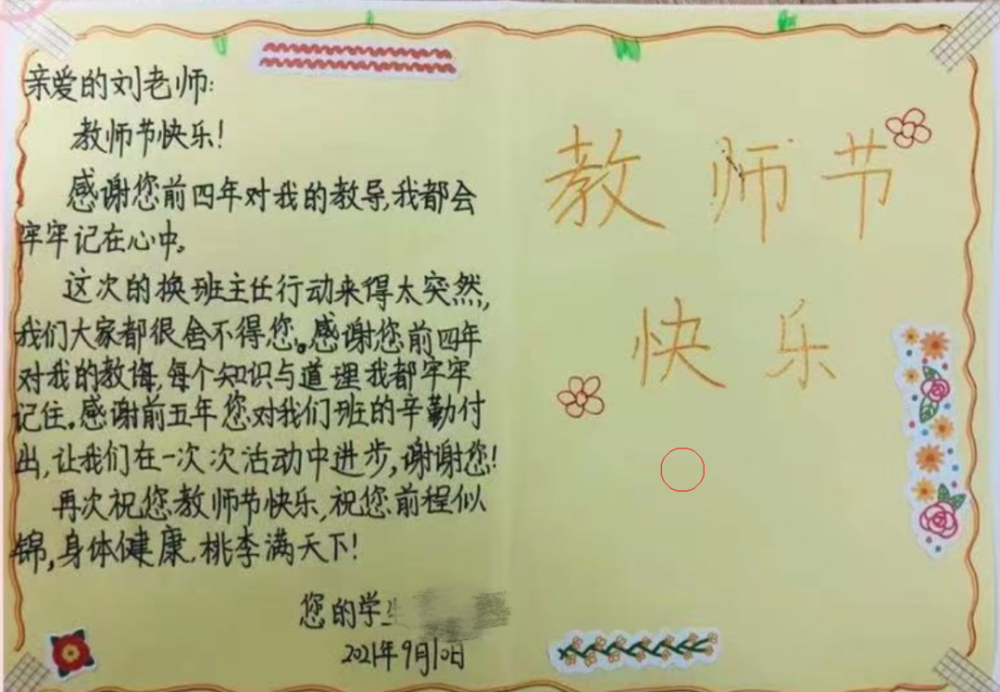 亲爱的刘老师:
教师节快乐!
感谢您前四年对我的教导,我都会
牢牢记在心中。
这次的换班主任行动来得太突然,
我们大家都很舍不得您。感谢您前四年
对我的教诲,每个知识与道理我都牢牢
记住。感谢前五年您对我们班的辛勤付
出,让我们在一次次活动中进步,谢谢您!
再次祝您教师节快乐,祝您前程似
锦,身体健康,桃李满天下!
您的学生
2021年9月10日
教师节
快乐